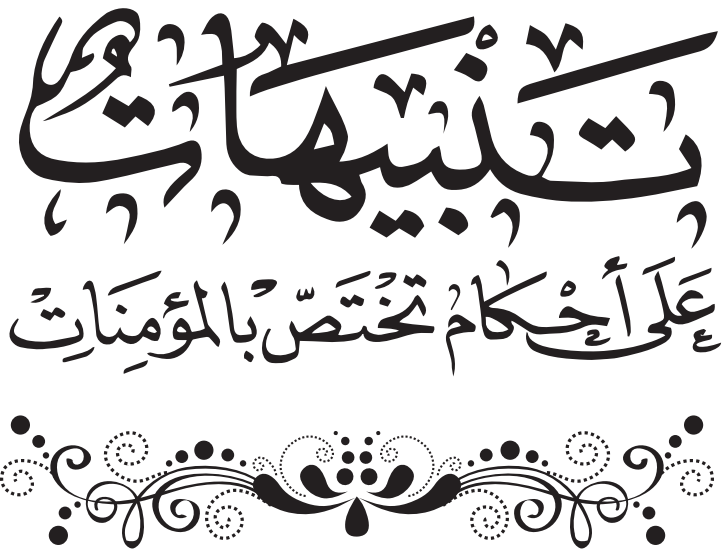 تنبيهات
على أحكام تختص بالمؤمنات